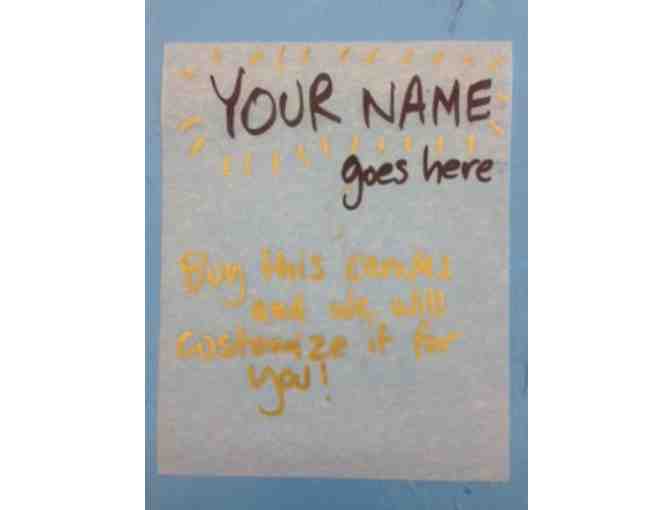 YOUR NAME
goes here
Buy this canvas
and we will
customize it for
you!